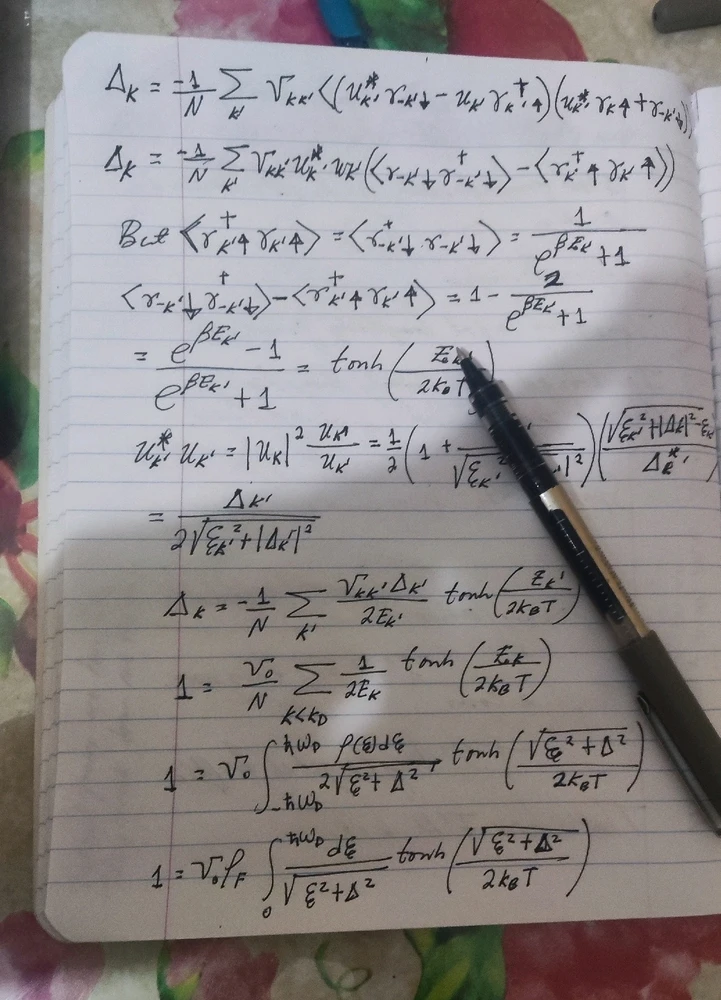 Δ_K = -1/N Σ_K' V_KK' ⟨(u*_K' γ_-K'↓ - u_K' γ†_K'↑)(u*_K' γ_K↑ + γ_-K'↓)⟩
Δ_K = -1/N Σ_K' V_KK' u*_K' u_K' (⟨γ_-K'↓ γ†_-K'↓⟩ - ⟨γ†_K'↑ γ_K'↑⟩)
But ⟨γ†_K'↑ γ_K'↑⟩ = ⟨γ†_-K'↓ γ_-K'↓⟩ = 1/(e^{βE_K'} + 1)
⟨γ_-K'↓ γ†_-K'↓⟩ - ⟨γ†_K'↑ γ_K'↑⟩ = 1 - 2/(e^{βE_K'} + 1)
= (e^{βE_K'} - 1)/(e^{βE_K'} + 1) = tanh(E_K'/2k_BT)
u*_K' u_K' = |u_K|² u_K'/u_K' = 1/2 (1 + /√(ξ_K'² |²)) ((√(ξ_K'² + |Δ_K|²) - ξ_K')/Δ*_K')
= Δ_K'/(2√(ξ_K'² + |Δ_K'|²))
Δ_K = -1/N Σ_K' (V_KK' Δ_K')/(2E_K') tanh(E_K'/2k_BT)
1 = V₀/N Σ_{K<K_D} 1/(2E_K) tanh(E_K/2k_BT)
1 = V₀ ∫_{-ħω_D}^{ħω_D} ρ(ξ)dξ/(2√(ξ² + Δ²)) tanh(√(ξ² + Δ²)/2k_BT)
1 = V₀ρ_F ∫_0^{ħω_D} dξ/√(ξ² + Δ²) tanh(√(ξ² + Δ²)/2k_BT)